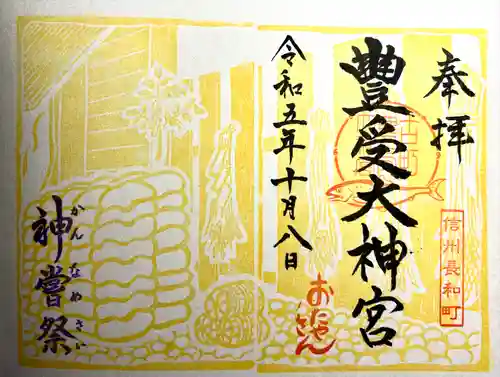 奉拝
豊受大神宮
信州長和町
令和五年十月八日
おたや
さん
神嘗祭
かんなめさい